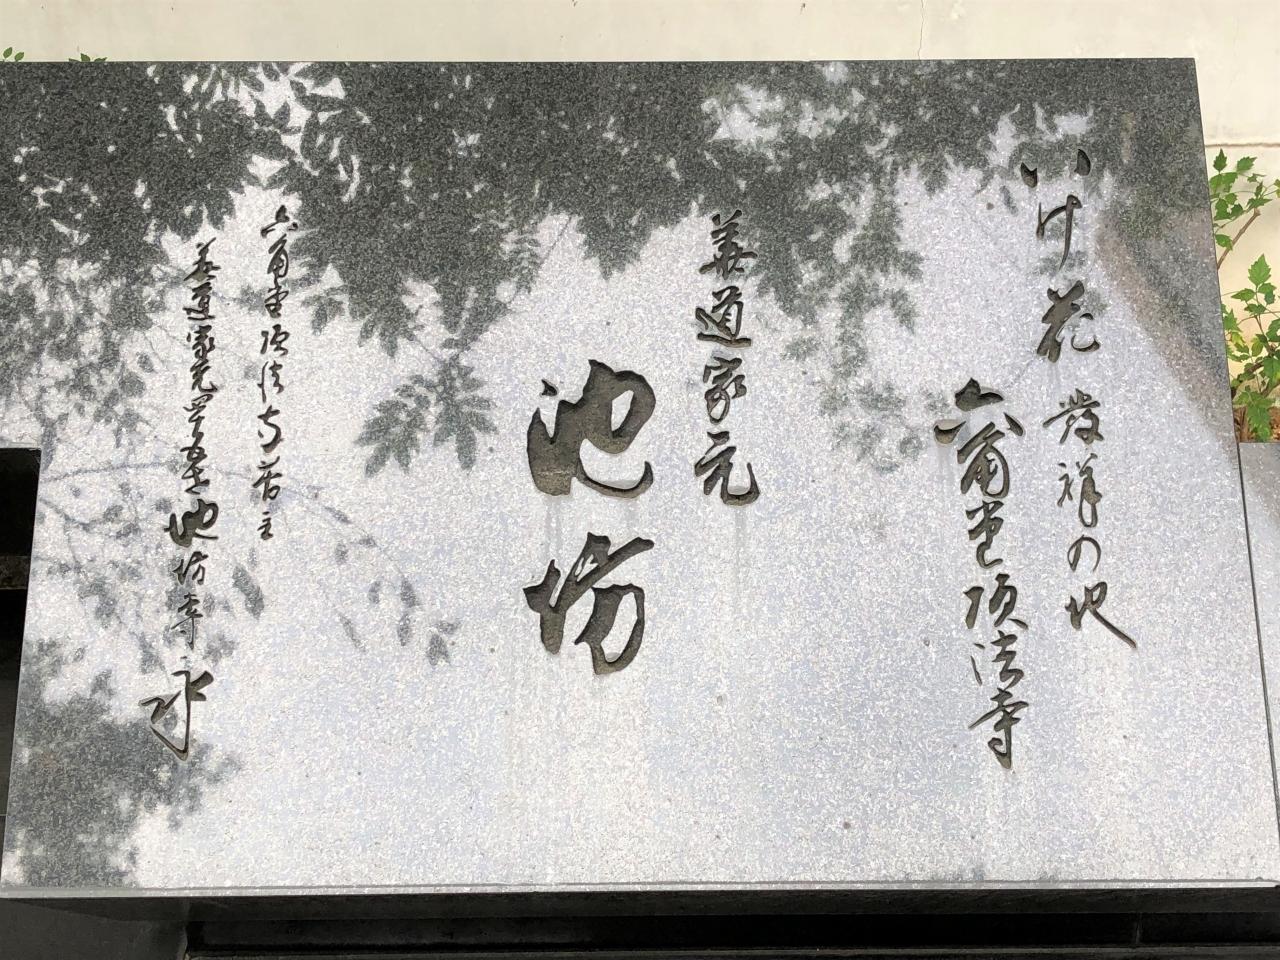 いけ花発祥の地
六角堂頂法寺
華道家元
池坊
六角堂頂法寺住主
華道家元四十五世池坊専永